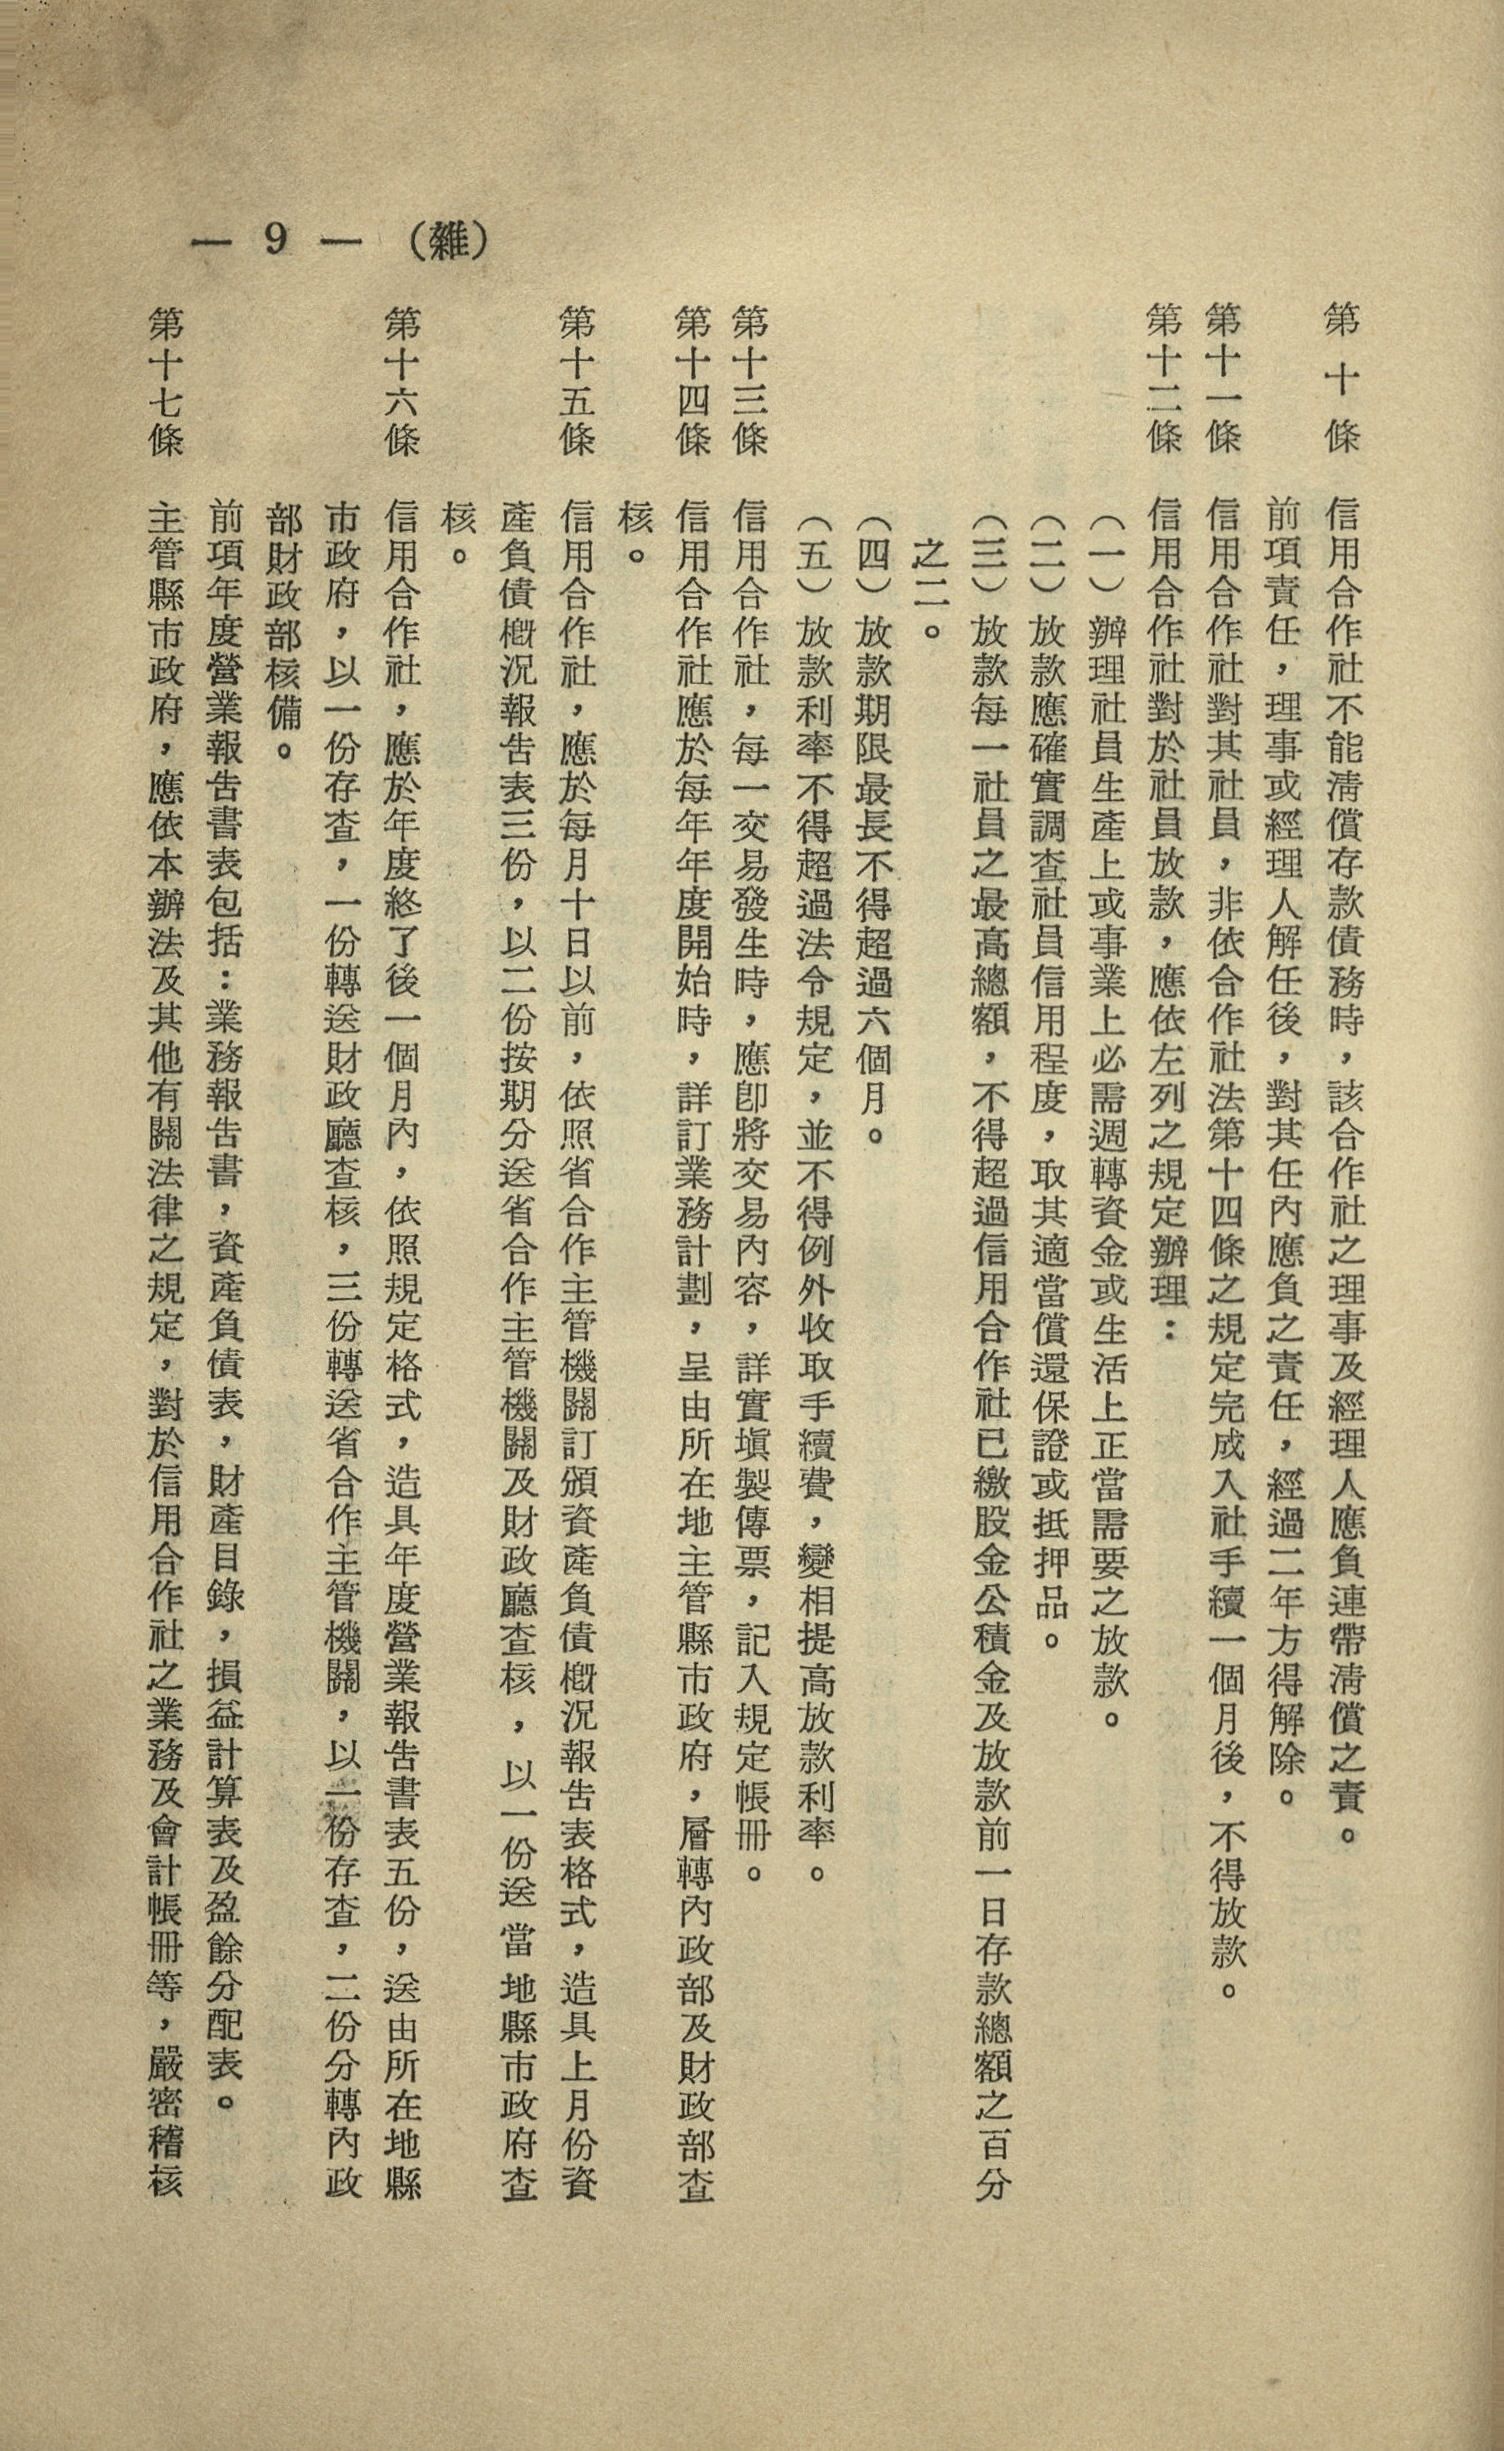 — 9 — （雜）
第十條　信用合作社不能淸償存款債務時，該合作社之理事及經理人應負連帶淸償之責。
前項責任，理事或經理人解任後，對其任內應負之責任，經過二年方得解除。
第十一條　信用合作社對其社員，非依合作社法第十四條之規定完成入社手續一個月後，不得放款。
第十二條　信用合作社對於社員放款，應依左列之規定辦理：
（一）辦理社員生產上或事業上必需週轉資金或生活上正當需要之放款。
（二）放款應確實調查社員信用程度，取其適當償還保證或抵押品。
（三）放款每一社員之最高總額，不得超過信用合作社已繳股金公積金及放款前一日存款總額之百分
之二。
（四）放款期限最長不得超過六個月。
（五）放款利率不得超過法令規定，並不得例外收取手續費，變相提高放款利率。
第十三條　信用合作社，每一交易發生時，應卽將交易內容，詳實塡製傳票，記入規定帳冊。
第十四條　信用合作社應於每年年度開始時，詳訂業務計劃，呈由所在地主管縣市政府，層轉內政部及財政部查
核。
第十五條　信用合作社，應於每月十日以前，依照省合作主管機關訂頒資產負債槪況報告表格式，造具上月份資
產負債槪況報告表三份，以二份按期分送省合作主管機關及財政廳查核，以一份送當地縣市政府查
核。
第十六條　信用合作社，應於年度終了後一個月內，依照規定格式，造具年度營業報告書表五份，送由所在地縣
市政府，以一份存查，一份轉送財政廳查核，三份轉送省合作主管機關，以一份存查，二份分轉內政
部財政部核備。
前項年度營業報告書表包括：業務報告書，資產負債表，財產目錄，損益計算表及盈餘分配表。
第十七條　主管縣市政府，應依本辦法及其他有關法律之規定，對於信用合作社之業務及會計帳冊等，嚴密稽核